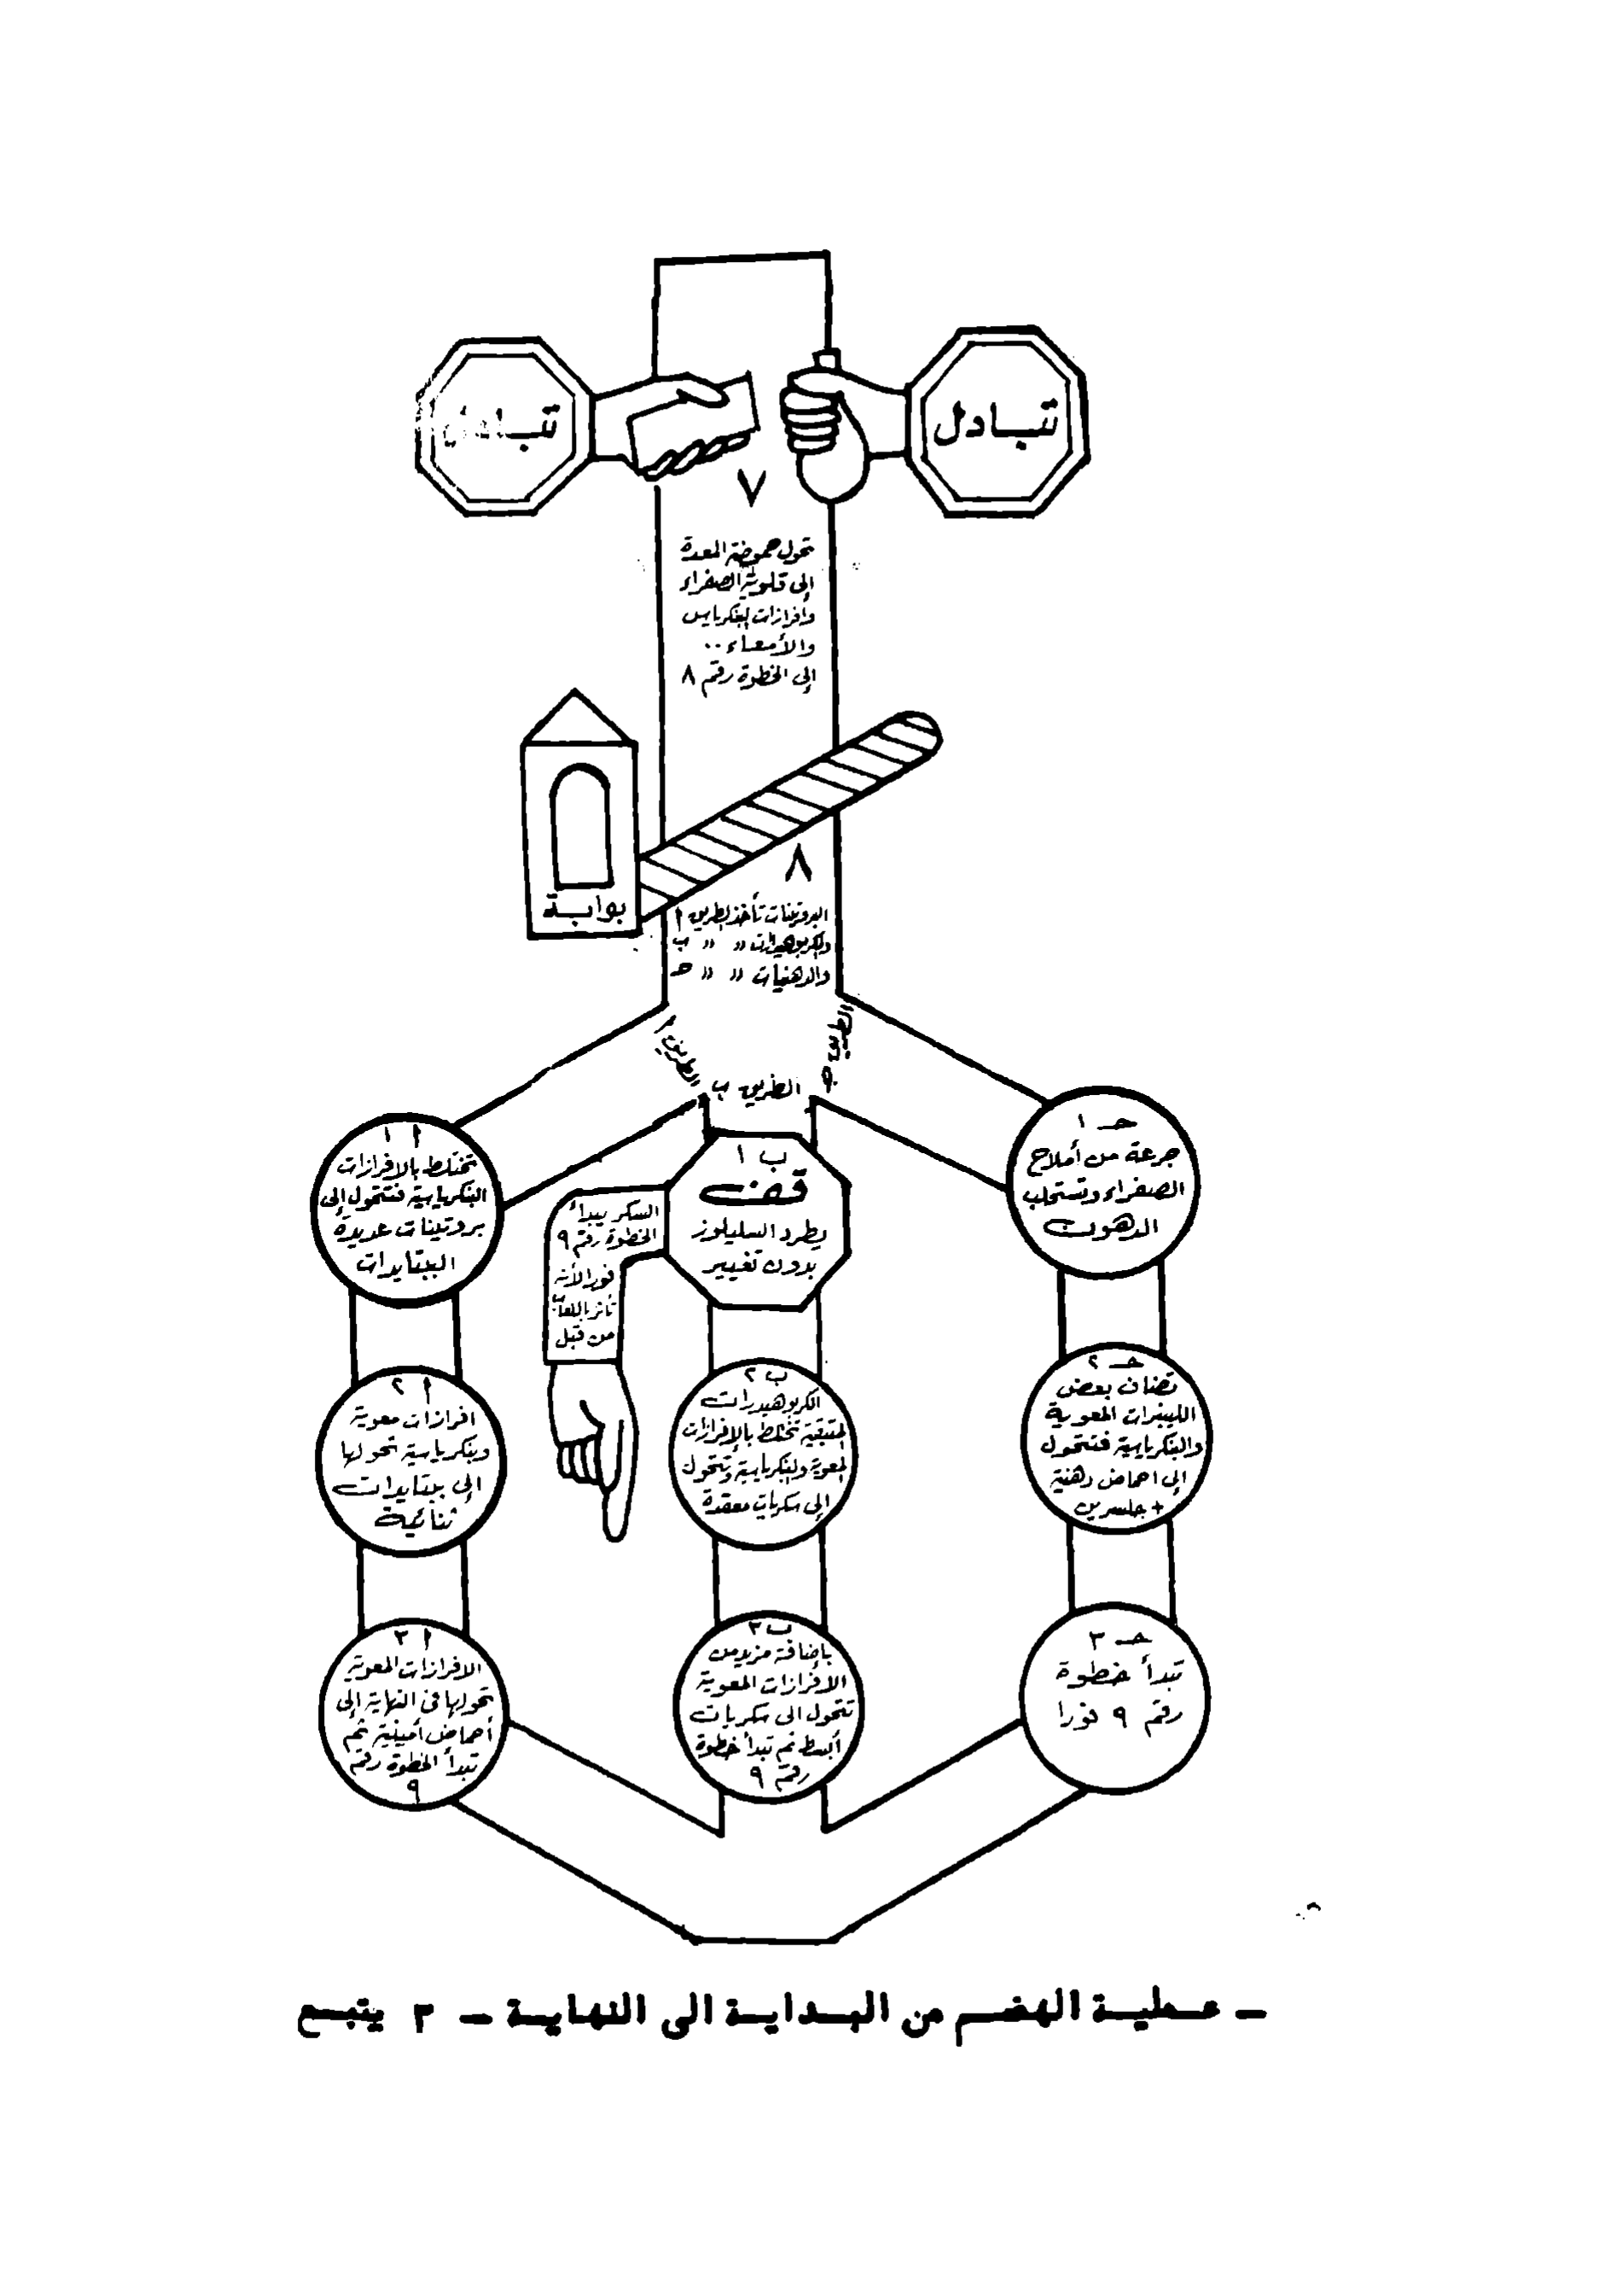 تبادل
تبادل
٧
تحول حموضة المعدة
إلى قلوية الصفراء
وافرازات البنكرياس
والأمعاء ..
إلى الخطوة رقم ٨
بوابة
٨
البروتينات تأخذ الطريق أ
والكربوهيدرات " " ب
والدهنيات " " حـ
الطريق أ
الطريق ب
الطريق جـ
أ ١
تختلط بالافرازات
البنكرياسية فتتحول إلى
بروتينات عديدة
الببتايدات
ب ١
قف
يطرد السليلوز
بدون تغيير
السكر يبدأ
الخطوة رقم ٩
فورا لأنه
تأثر باللعاب
من قبل
حـ ١
جرعة من أملاح
الصفراء وتستحلب
الدهون
أ ٢
افرازات معوية
وبنكرياسية تحولها
إلى ببتايدات
ثنائية
ب ٢
الكربوهيدرات
المتبقية تختلط بالإفرازات
المعوية والبنكرياسية وتتحول
إلى سكريات معقدة
حـ ٢
تضاف بعض
الليبزات المعوية
والبنكرياسية فتتحول
إلى احماض دهنية
+ جلسرين
أ ٣
الافرازات المعوية
تحولها فى النهاية إلى
أحماض أمينية ثم
تبدأ الخطوة رقم
٩
ب ٣
بإضافة مزيد من
الافرازات المعوية
تتحول الى سكريات
أبسط ثم تبدأ خطوة
رقم ٩
حـ ٣
تبدأ خطوة
رقم ٩ فورا
ــ عملية الهضم من البداية الى النهاية ــ ٣ يتبع